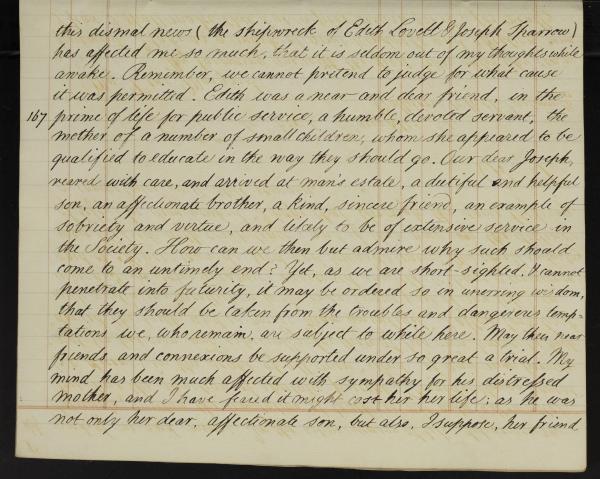 this dismal news (the shipwreck of Edith Lovell & Joseph Sparrow)
has affected me so much, that it is seldom out of my thoughts while
awake. Remember, we cannot pretend to judge for what cause
it was permitted. Edith was a near and dear friend, in the
167 prime of life for public service, a humble, devoted servant, the
mother of a number of small children, whom she appeared to be
qualified to educate in the way they should go. Our dear Joseph,
reared with care, and arrived at man's estate, a dutiful and helpful
son, an affectionate brother, a kind, sincere friend, an example of
sobriety and virtue, and likely to be of extensive service in
the Society. How can we then but admire why such should
come to an untimely end? Yet, as we are short-sighted, & cannot
penetrate into futurity, it may be ordered so in unerring wisdom,
that they should be taken from the troubles and dangerous temp-
tations we, who remain, are subject to while here. May their near
friends and connexions be supported under so great a trial. My
mind has been much affected with sympathy for his distressed
mother, and I have feared it might cost her her life; as he was
not only her dear, affectionate son, but also, I suppose, her friend